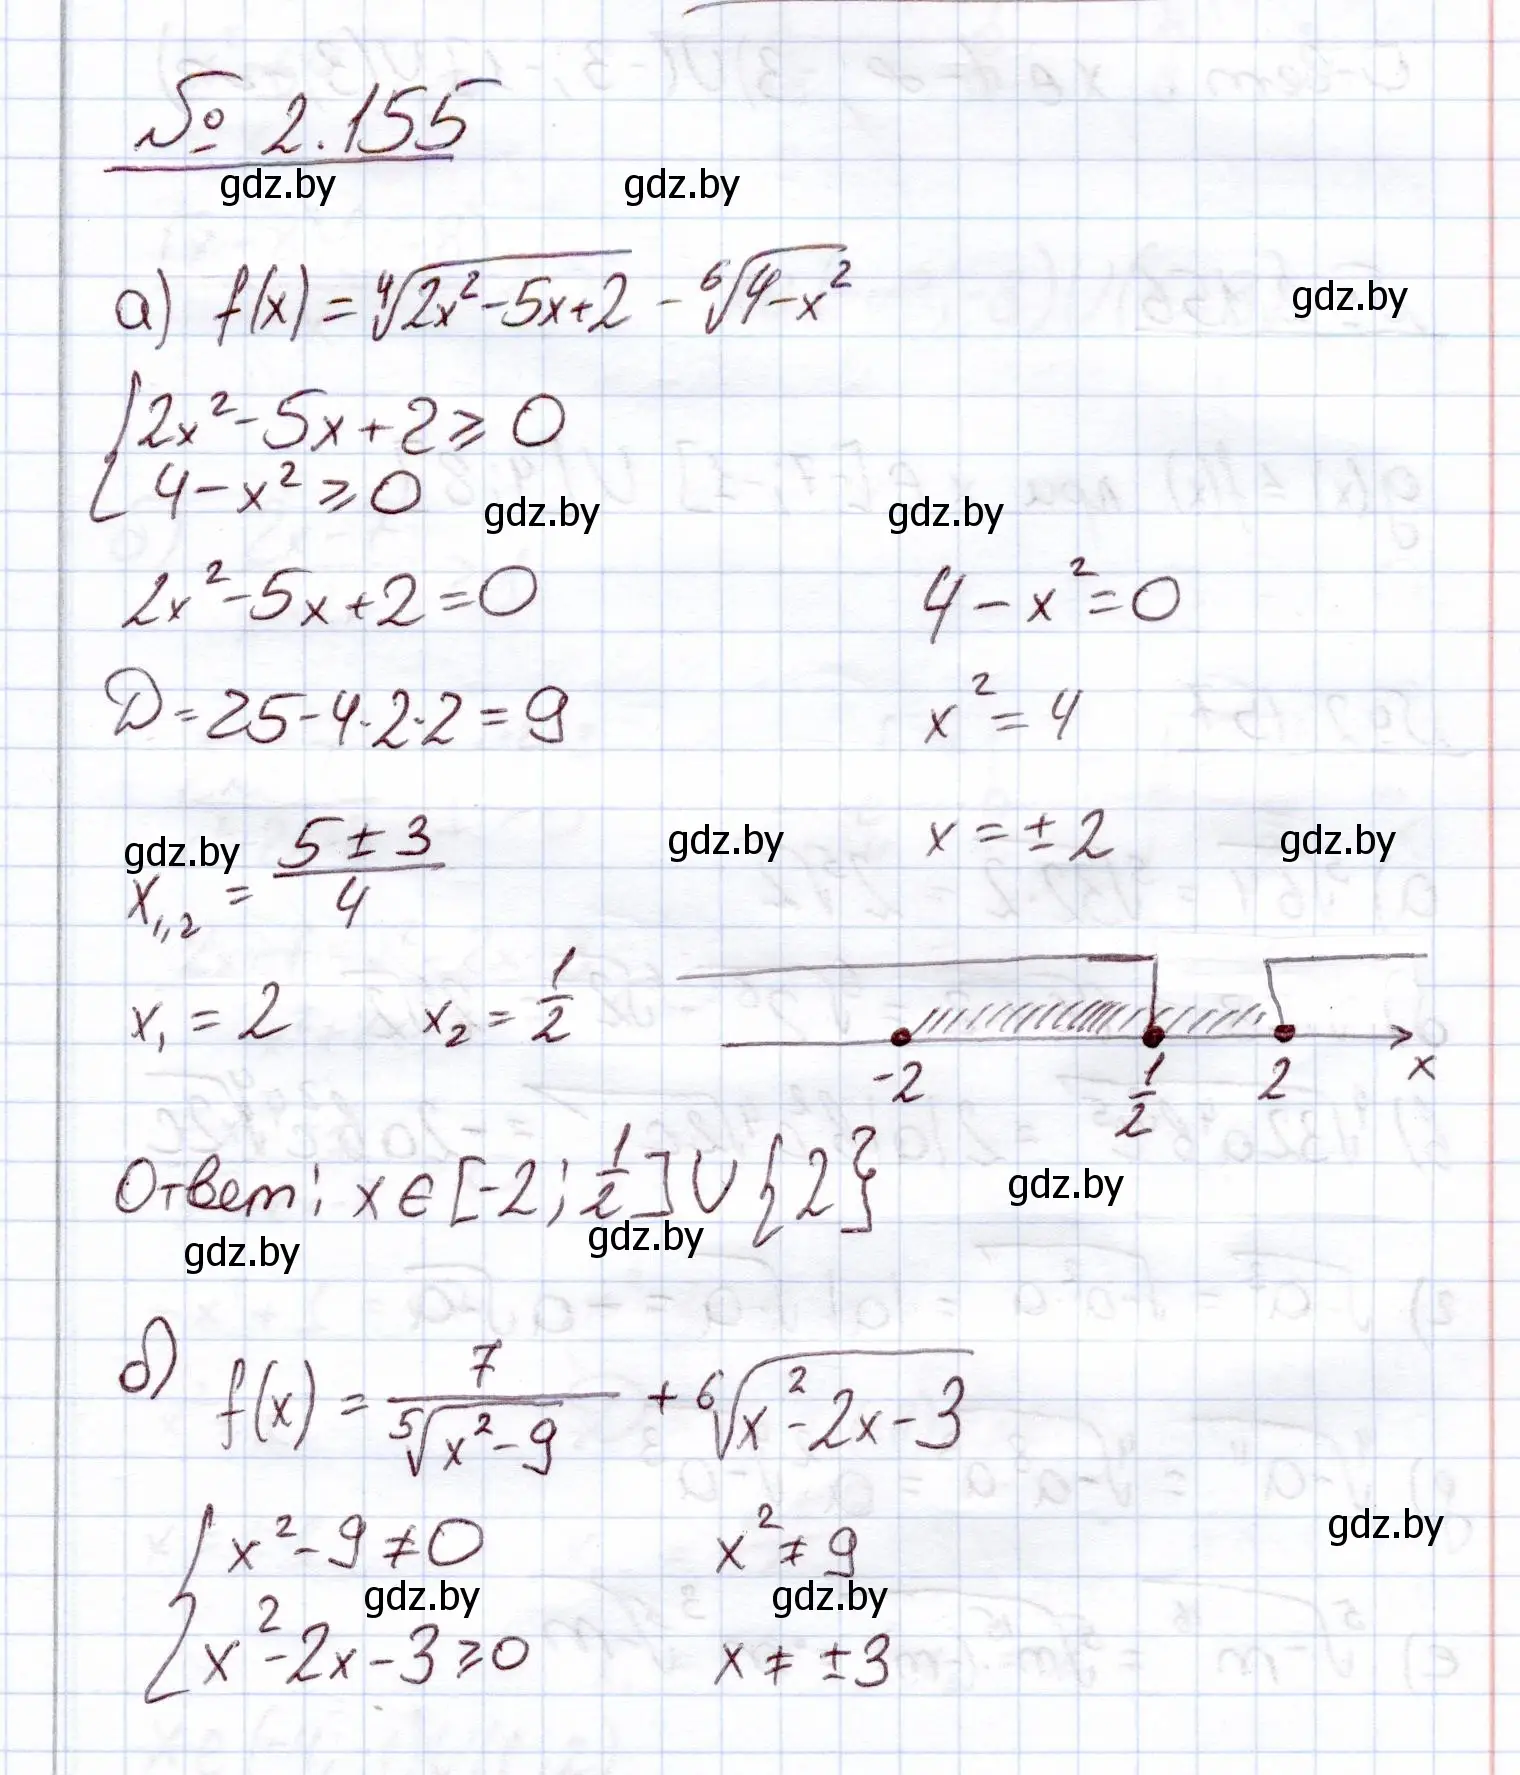 № 2.155
gdz.by gdz.by
а) f(x) = ⁴√(2x²-5x+2) - ⁶√(4-x²) gdz.by
{ 2x²-5x+2 ≥ 0
4-x² ≥ 0 gdz.by gdz.by
2x²-5x+2=0 4-x²=0
D=25-4·2·2=9 x²=4
gdz.by gdz.by x=±2 gdz.by
x₁,₂ = (5±3)/4
x₁ = 2 x₂ = 1/2
-2 1/2 2 x
Ответ: x∈[-2; 1/2]∪{2} gdz.by
gdz.by gdz.by
б) f(x) = 7/⁵√(x²-9) + ⁶√(x²-2x-3)
{ x²-9≠0 x²≠9 gdz.by
gdz.by gdz.by
x²-2x-3≥0 x≠±3